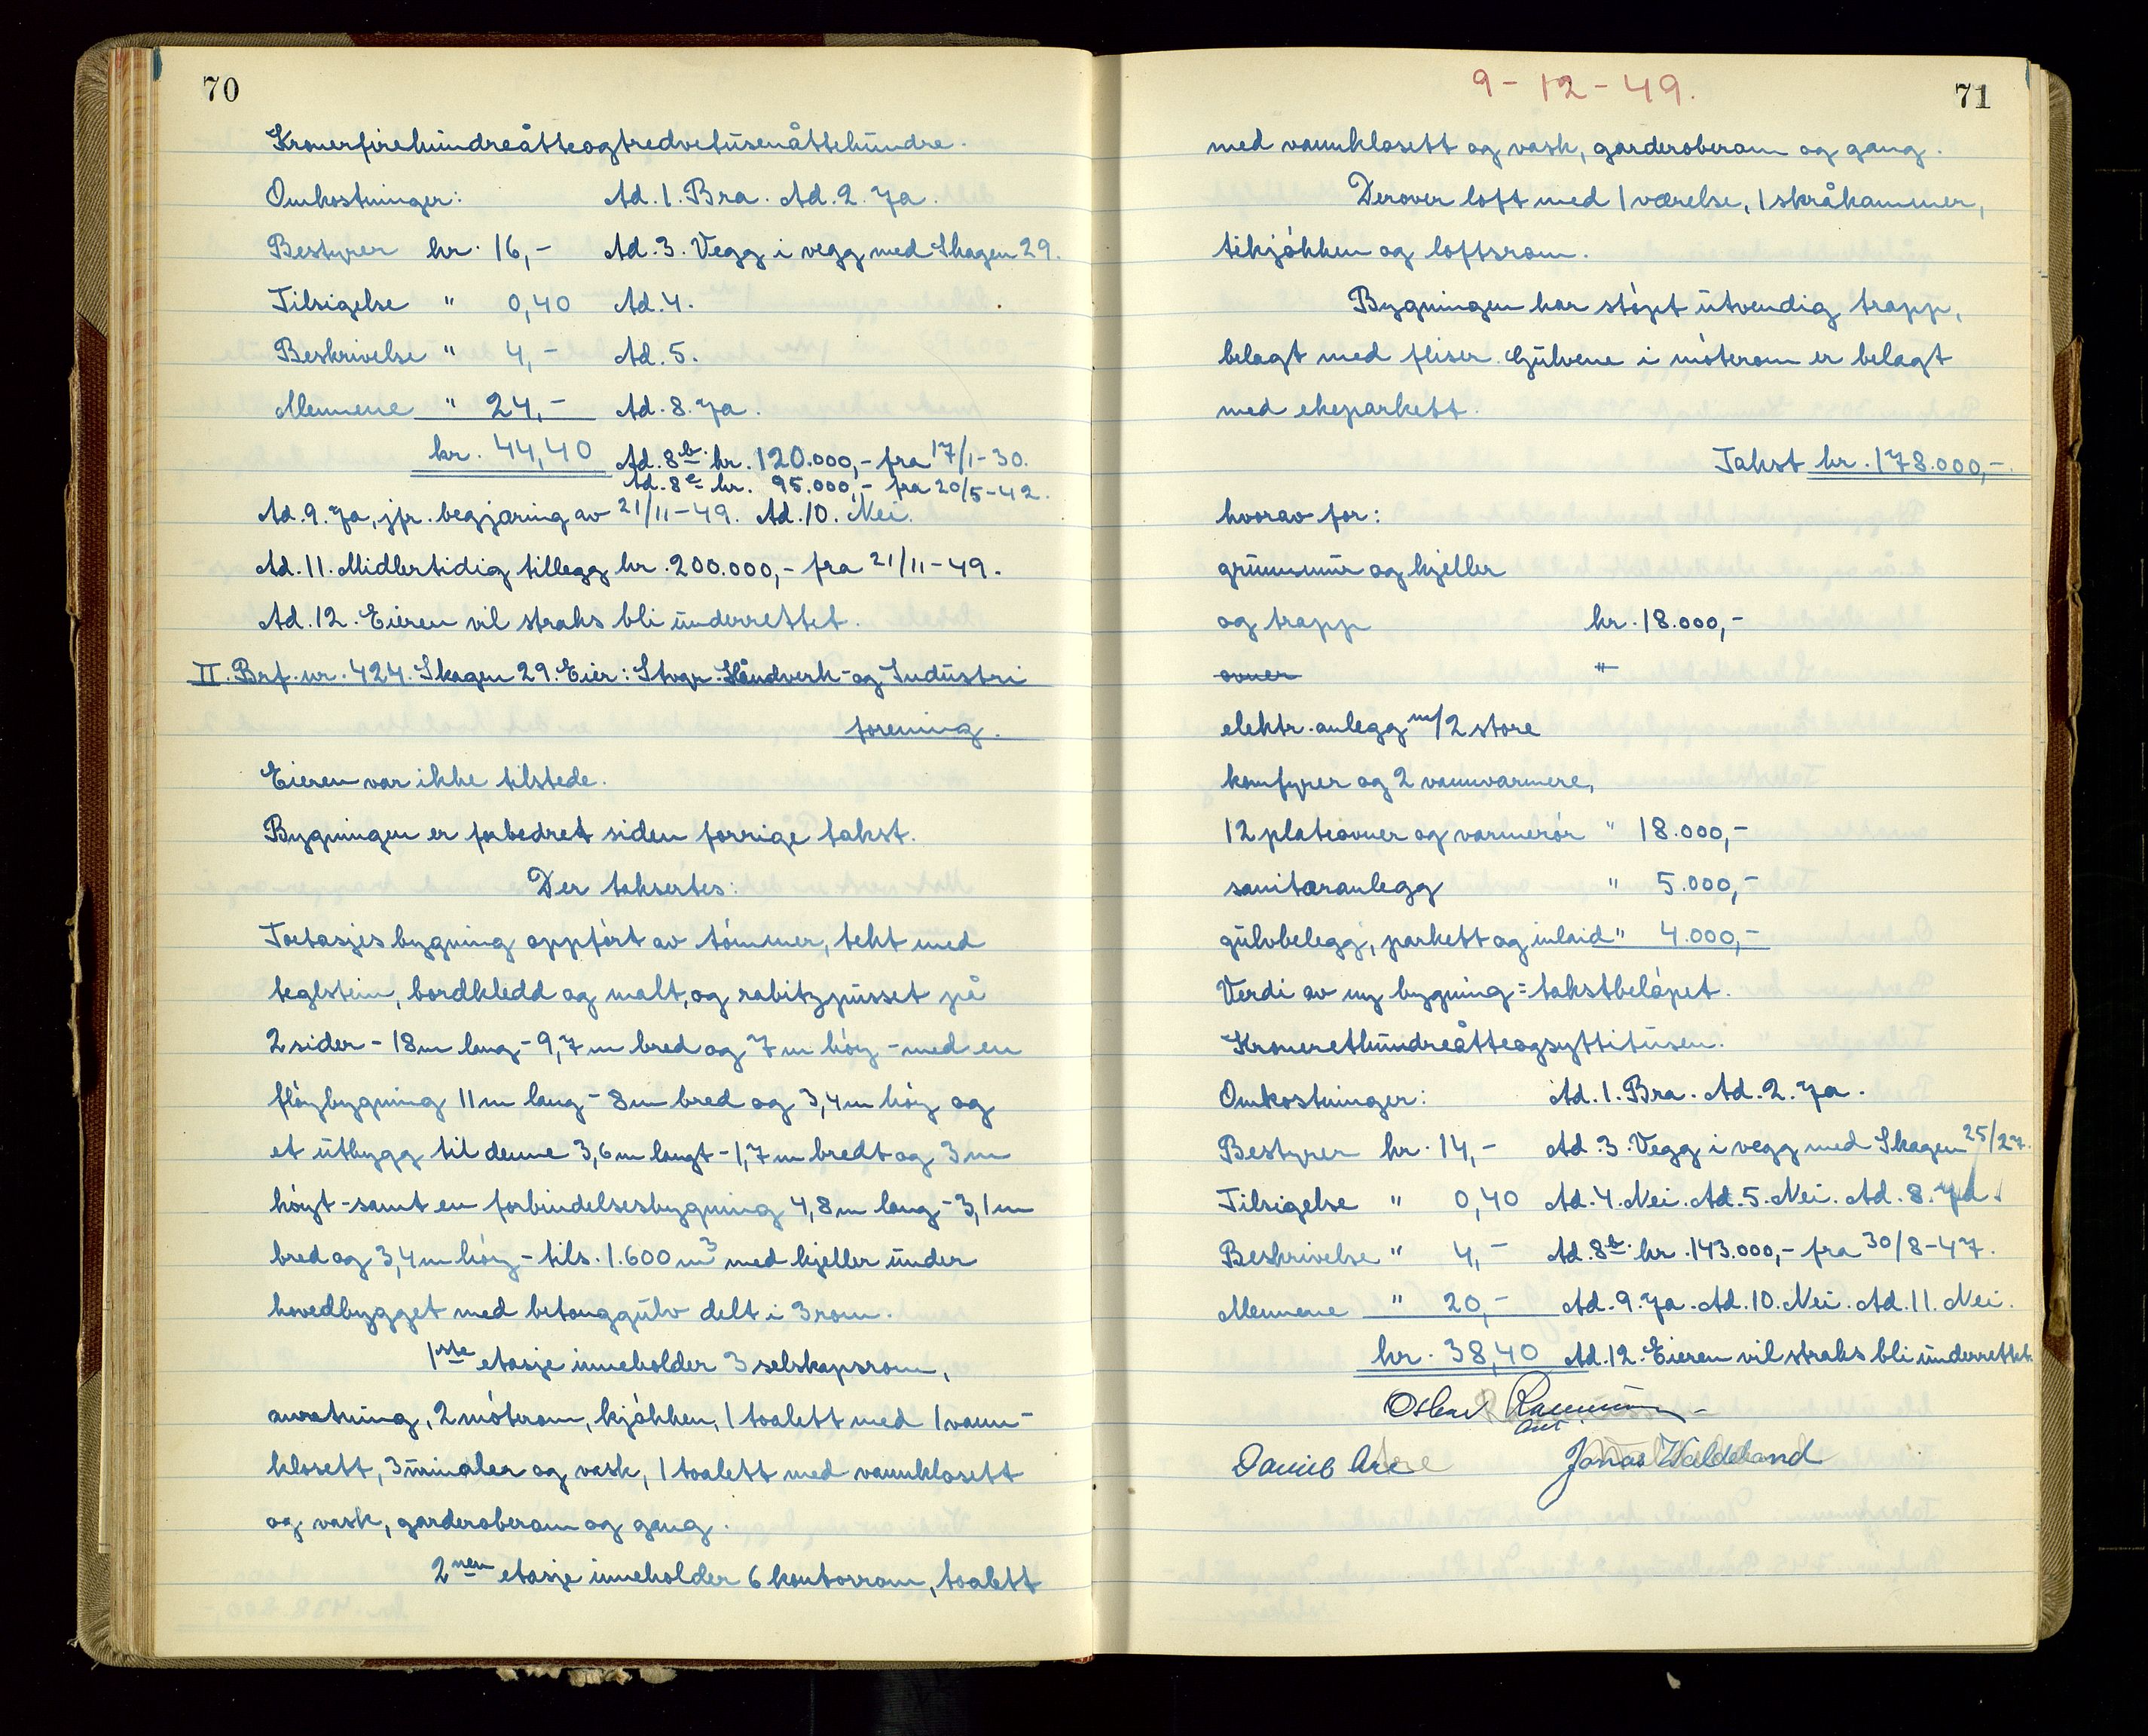 70
Kronerfirehundreåtteogtredvetusenåttehundre.
Omkostninger: Ad. 1. Bra. Ad. 2. Ja.
Bestyrer kr. 16,- Ad. 3. Vegg i vegg med Skagen 29.
Tilsigelse " 0,40 Ad. 4.
Beskrivelse " 4,- Ad. 5.
Mennene " 24,- Ad. 8. Ja.
kr. 44,40 Ad. 8b. kr. 120.000,- fra 17/1-30.
Ad. 8c kr. 95.000,- fra 20/5-42.
Ad. 9. Ja, jfr. begjæring av 21/11-49. Ad. 10. Nei.
Ad. 11. Midlertidig tillegg kr. 200.000,- fra 21/11-49.
Ad. 12. Eieren vil straks bli underrettet.
II. Brf. nr. 424. Skagen 29. Eier: Stvgr. Håndverk- og Industri
forening.
Eieren var ikke tilstede.
Bygningen er forbedret siden forrige takst.
Der taksertes:
Toetasjes bygning oppført av tømmer, tekt med
teglstein, bordkledd og malt, og rabitzpusset på
2 sider - 18m lang - 9,7m bred og 7m høy - med en
fløybygning 11m lang - 8m bred og 3,4m høy og
et utbygg til denne 3,6m langt - 1,7m bredt og 3m
høyt - samt en forbindelsesbygning 4,8m lang - 3,1m
bred og 3,4m høy - tils. 1.600 m³ med kjeller under
hovedbygget med betonggulv delt i 3 rom.
1ste etasje inneholder 3 selskapsrom,
anretning, 2 møterom, kjøkken, 1 toalett med 1 vann-
klosett, 3 urinaler og vask, 1 toalett med vannklosett
og vask, garderoberom og gang.
2nen etasje inneholder 6 kontorrom, toalett
9-12-49.
71
med vannklosett og vask, garderoberom og gang.
Derover loft med 1 værelse, 1 skråkammer,
tekjøkken og loftsrom.
Bygningen har støpt utvendig trapp,
belagt med fliser. Gulvene i møterom er belagt
med ekeparkett.
Takst kr. 178.000,-
hvorav for:
grunnmur og kjeller
og trapp kr. 18.000,-
ovner "
elektr. anlegg m/2 store
komfyrer og 2 vannvarmere,
12 plateovner og varmerør " 18.000,-
sanitæranlegg " 5.000,-
gulvbelegg, parkett og inlaid " 4.000,-
Verdi av ny bygning = takstbeløpet.
Kronerethundreåtteogsyttitusen.
Omkostninger: Ad. 1. Bra. Ad. 2. Ja.
Bestyrer kr. 14,- Ad. 3. Vegg i vegg med Skagen 25/27.
Tilsigelse " 0,40 Ad. 4. Nei. Ad. 5. Nei. Ad. 8. Ja.
Beskrivelse " 4,- Ad. 8b. kr. 143.000,- fra 30/8-47.
Mennene " 20,- Ad. 9. Ja. Ad. 10. Nei. Ad. 11. Nei.
kr. 38,40 Ad. 12. Eieren vil straks bli underrettet.
Oskar
Jonas Haldeland